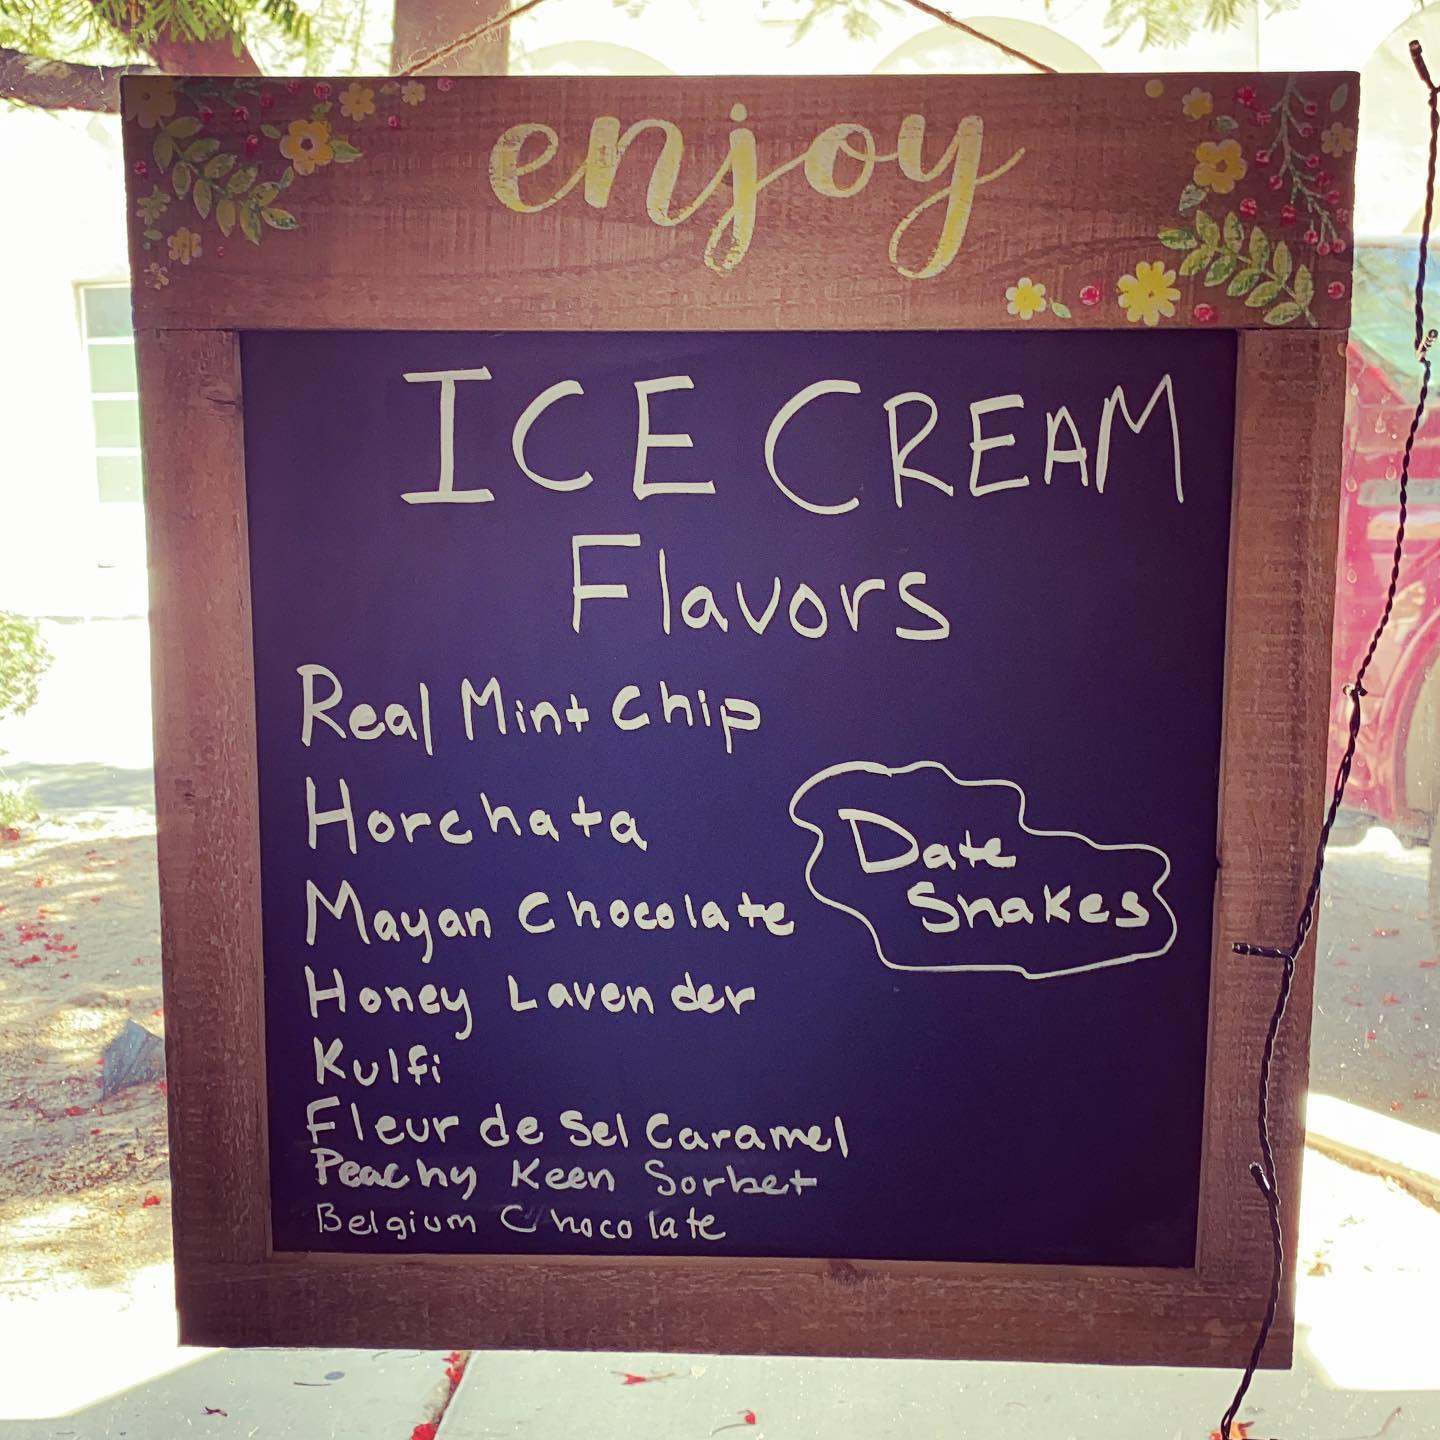 enjoy
ICE CREAM
Flavors
Real Mint Chip
Horchata
Mayan Chocolate
Honey Lavender
Kulfi
Fleur de Sel Caramel
Peachy Keen Sorbet
Belgium Chocolate
Date
Shakes